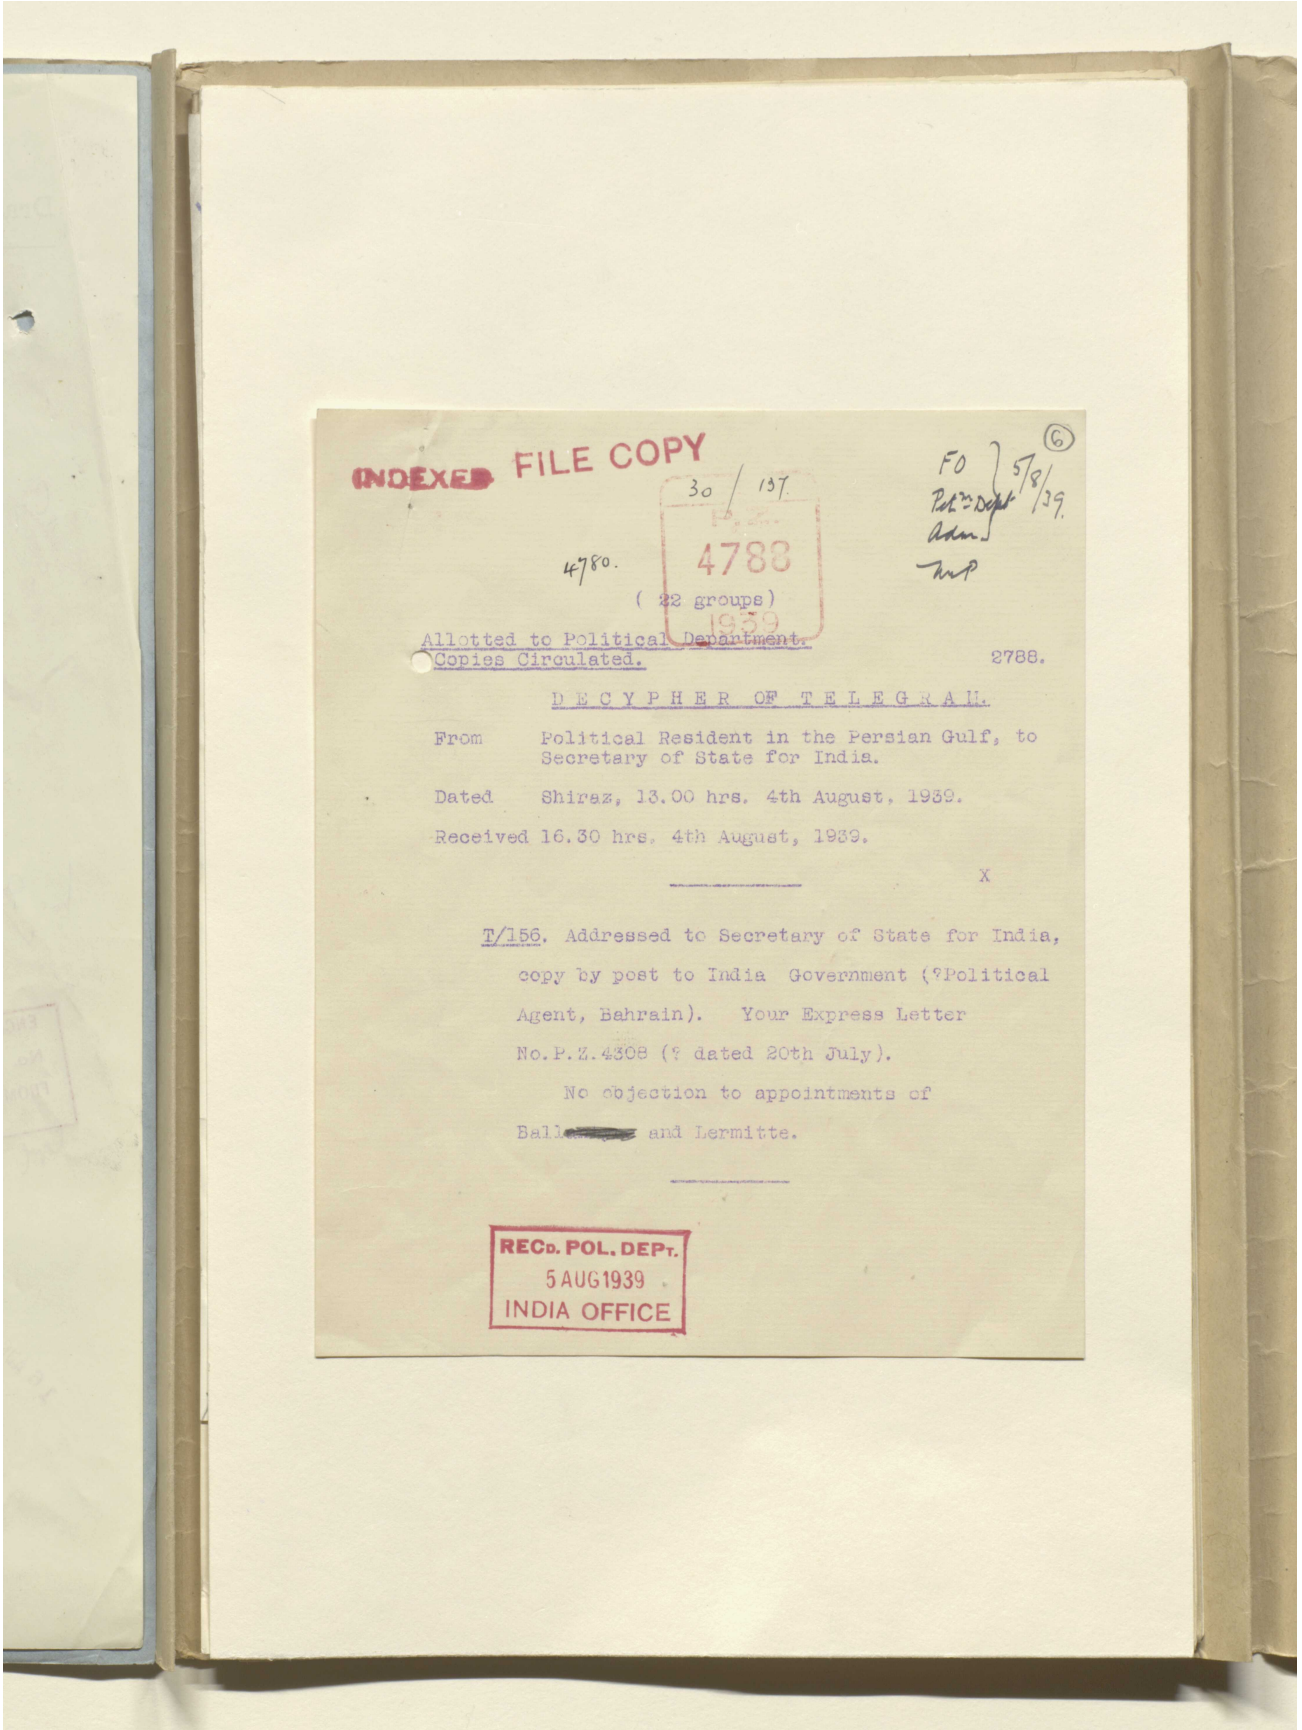 6
INDEXED FILE COPY
FO
5/8/39.
Petn Dept
Adm
30 / 137.
P.Z.
4788
1939
4780.
( 22 groups)
Allotted to Political Department.
Copies Circulated.
2788.
DECYPHER OF TELEGRAM.
From Political Resident in the Persian Gulf, to
Secretary of State for India.
Dated Shiraz, 13.00 hrs. 4th August, 1939.
Received 16.30 hrs. 4th August, 1939.
X
T/156. Addressed to Secretary of State for India,
copy by post to India Government (?Political
Agent, Bahrain). Your Express Letter
No.P.Z.4308 (? dated 20th July).
No objection to appointments of
Ball and Lermitte.
RECD. POL. DEPT.
5 AUG 1939
INDIA OFFICE